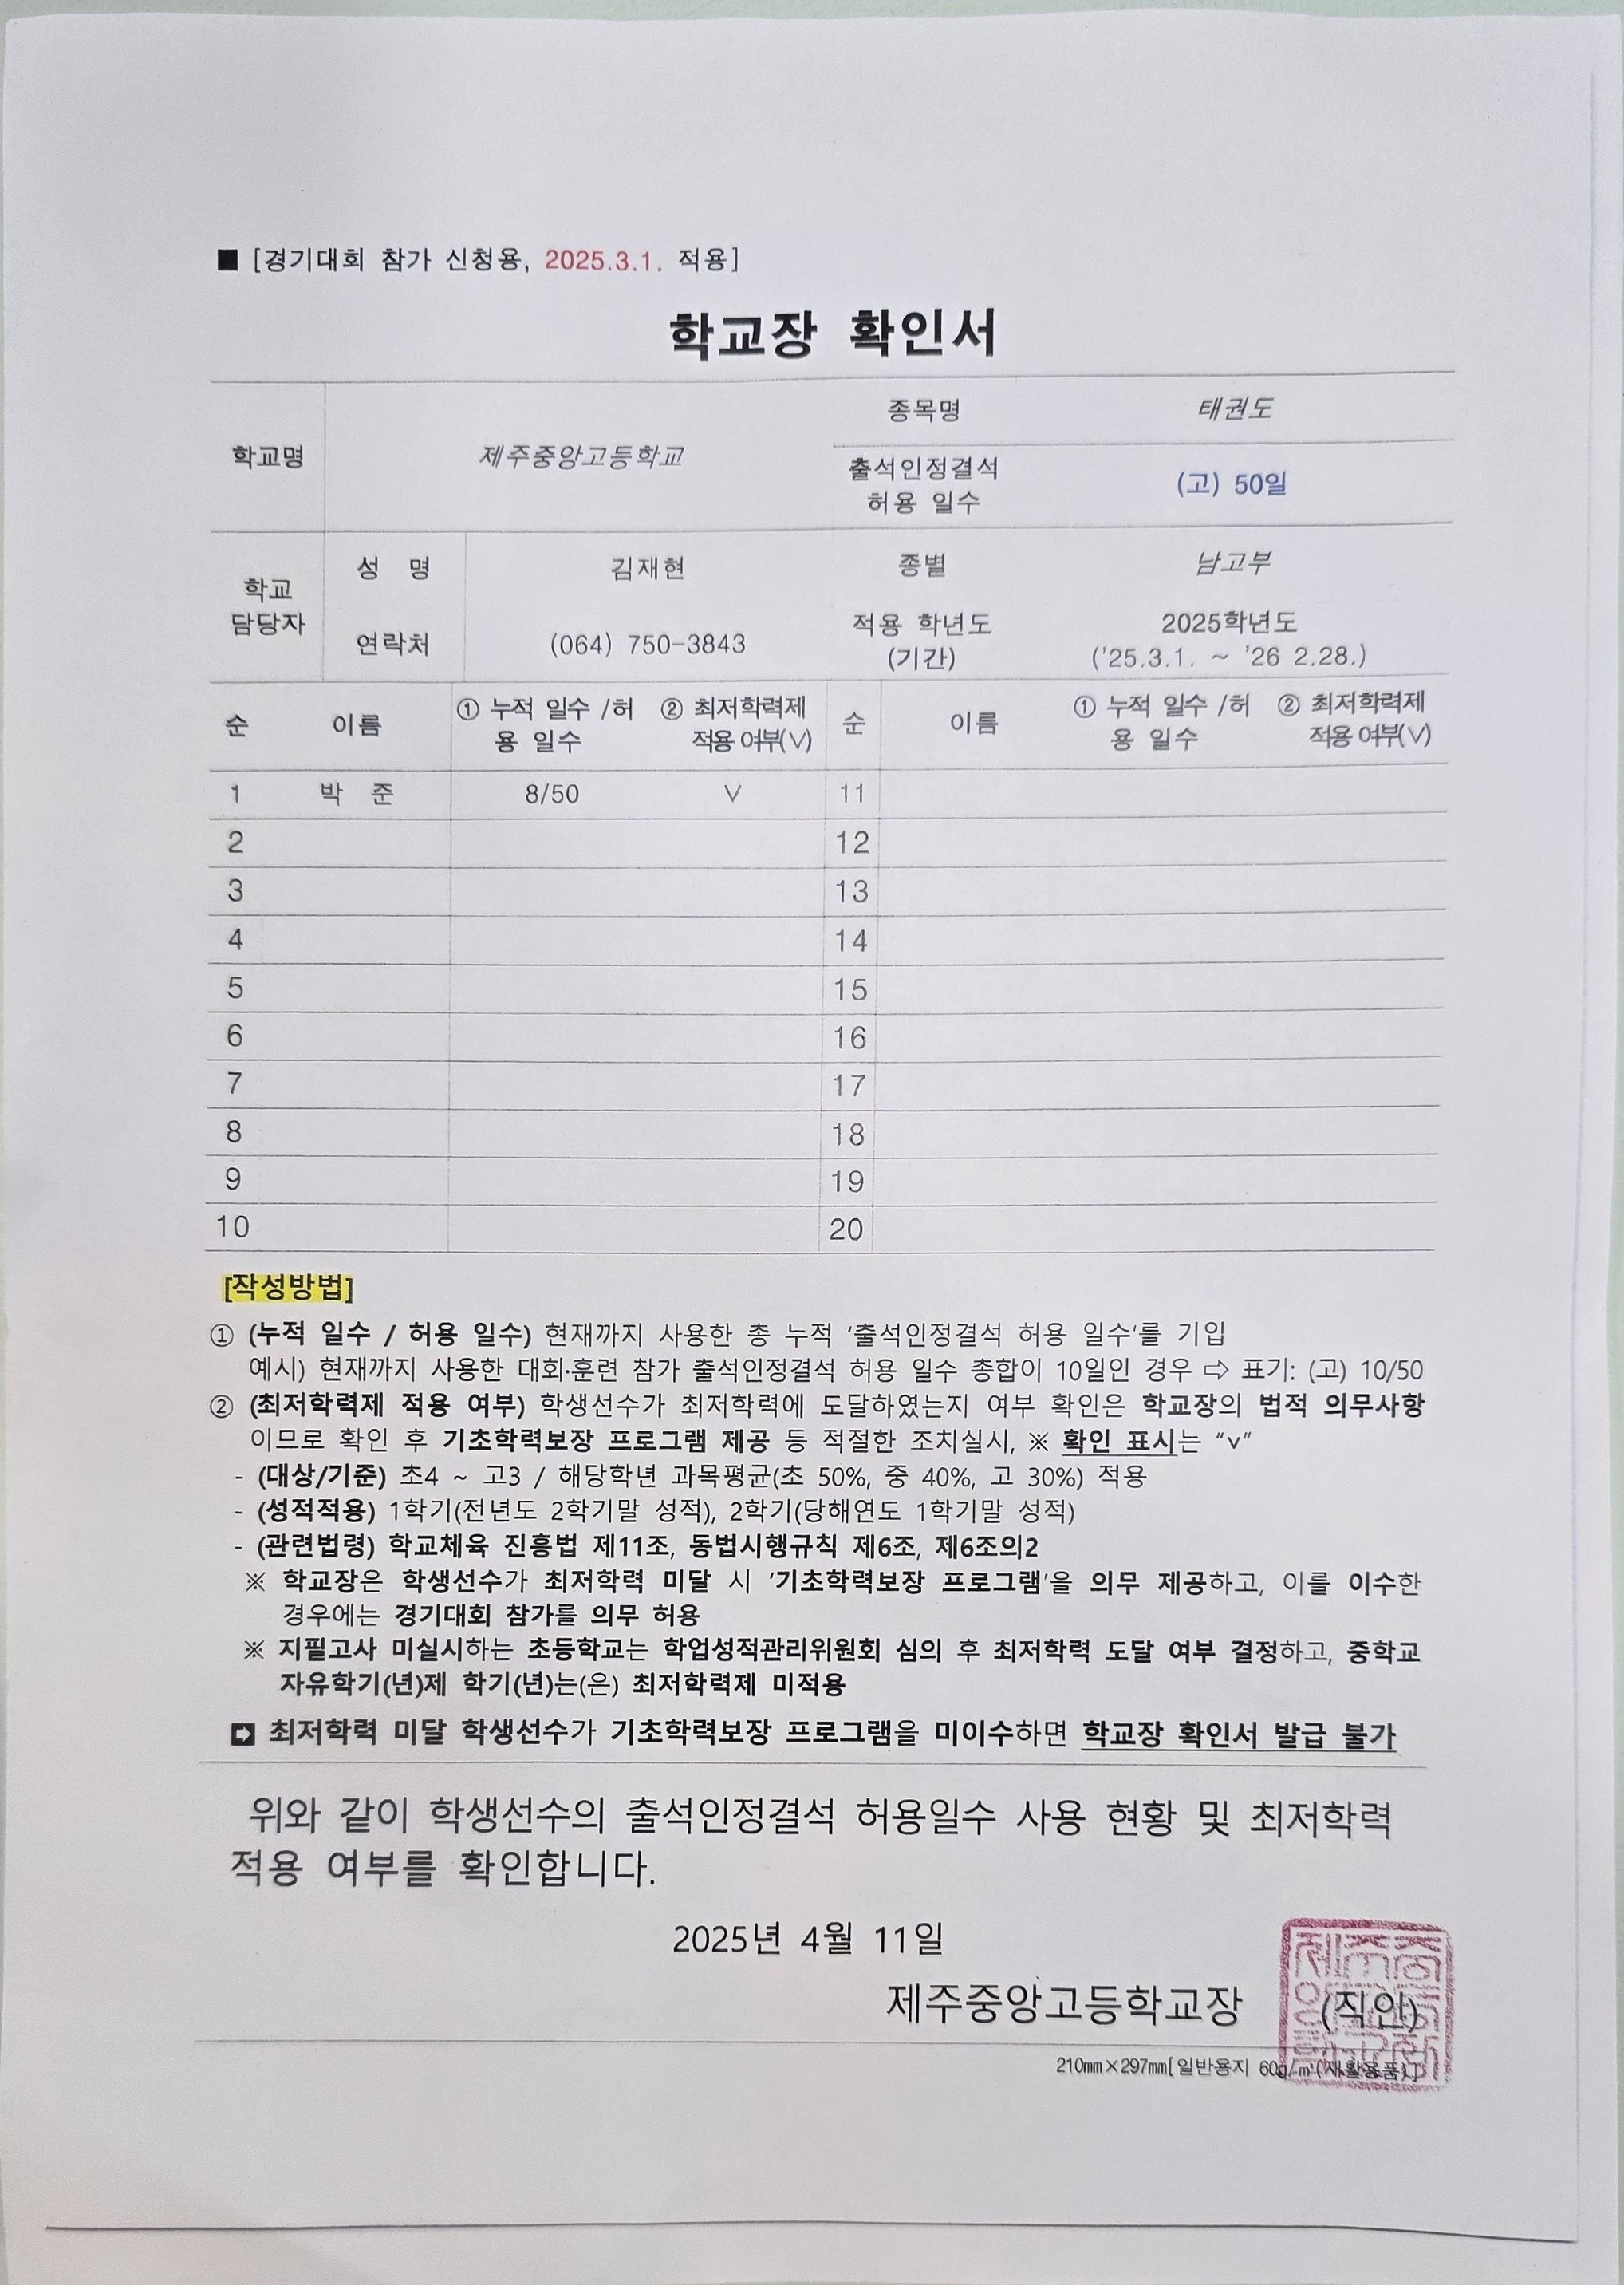 ■ [경기대회 참가 신청용, 2025.3.1. 적용]
학교장 확인서
학교명 제주중앙고등학교 종목명 태권도
출석인정결석 허용 일수 (고) 50일
학교 담당자 성 명 김재현 종별 남고부
연락처 (064) 750-3843 적용 학년도 (기간) 2025학년도 ('25.3.1. ~ '26 2.28.)
순 이름 ① 누적 일수 /허용 일수 ② 최저학력제 적용 여부(∨) 순 이름 ① 누적 일수 /허용 일수 ② 최저학력제 적용 여부(∨)
1 박 준 8/50 ∨ 11
2 12
3 13
4 14
5 15
6 16
7 17
8 18
9 19
10 20
[작성방법]
① (누적 일수 / 허용 일수) 현재까지 사용한 총 누적 '출석인정결석 허용 일수'를 기입
예시) 현재까지 사용한 대회·훈련 참가 출석인정결석 허용 일수 총합이 10일인 경우 ⇨ 표기: (고) 10/50
② (최저학력제 적용 여부) 학생선수가 최저학력에 도달하였는지 여부 확인은 학교장의 법적 의무사항
이므로 확인 후 기초학력보장 프로그램 제공 등 적절한 조치실시, ※ 확인 표시는 "v"
- (대상/기준) 초4 ~ 고3 / 해당학년 과목평균(초 50%, 중 40%, 고 30%) 적용
- (성적적용) 1학기(전년도 2학기말 성적), 2학기(당해연도 1학기말 성적)
- (관련법령) 학교체육 진흥법 제11조, 동법시행규칙 제6조, 제6조의2
※ 학교장은 학생선수가 최저학력 미달 시 '기초학력보장 프로그램'을 의무 제공하고, 이를 이수한
경우에는 경기대회 참가를 의무 허용
※ 지필고사 미실시하는 초등학교는 학업성적관리위원회 심의 후 최저학력 도달 여부 결정하고, 중학교
자유학기(년)제 학기(년)는(은) 최저학력제 미적용
➡ 최저학력 미달 학생선수가 기초학력보장 프로그램을 미이수하면 학교장 확인서 발급 불가
위와 같이 학생선수의 출석인정결석 허용일수 사용 현황 및 최저학력
적용 여부를 확인합니다.
2025년 4월 11일
제주중앙고등학교장 (직인)
210㎜×297㎜[일반용지 60g/㎡(재활용품)]